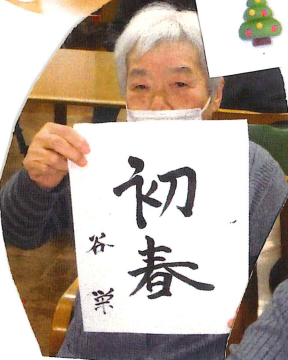 初春
谷栄